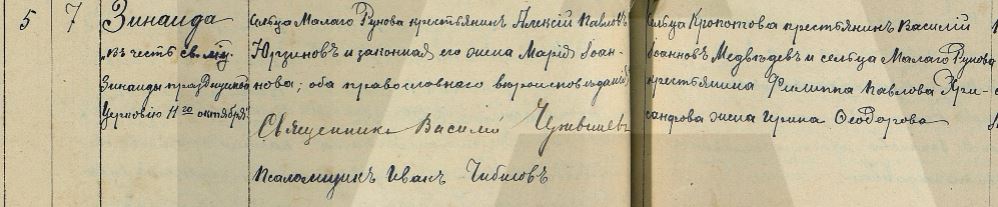 5 7 Зинаида
„въ честь св. мц.
Зинаиды празднуемой
Церковію 11го октября“
сельца Малаго Рунова крестьянинъ Алексій Павловъ
и законная его жена Марія Іоан-
нова; оба православнаго вѣроисповѣданія
Священникъ Василій
Псаломщикъ Иванъ Чибисовъ
сельца Кропотова крестьянинъ Василій
Іоанновъ Медвѣдевъ и сельца Малаго Рунова
крестьянина Филиппа Павлова Хри-
санфова жена Ирина Ѳеодорова